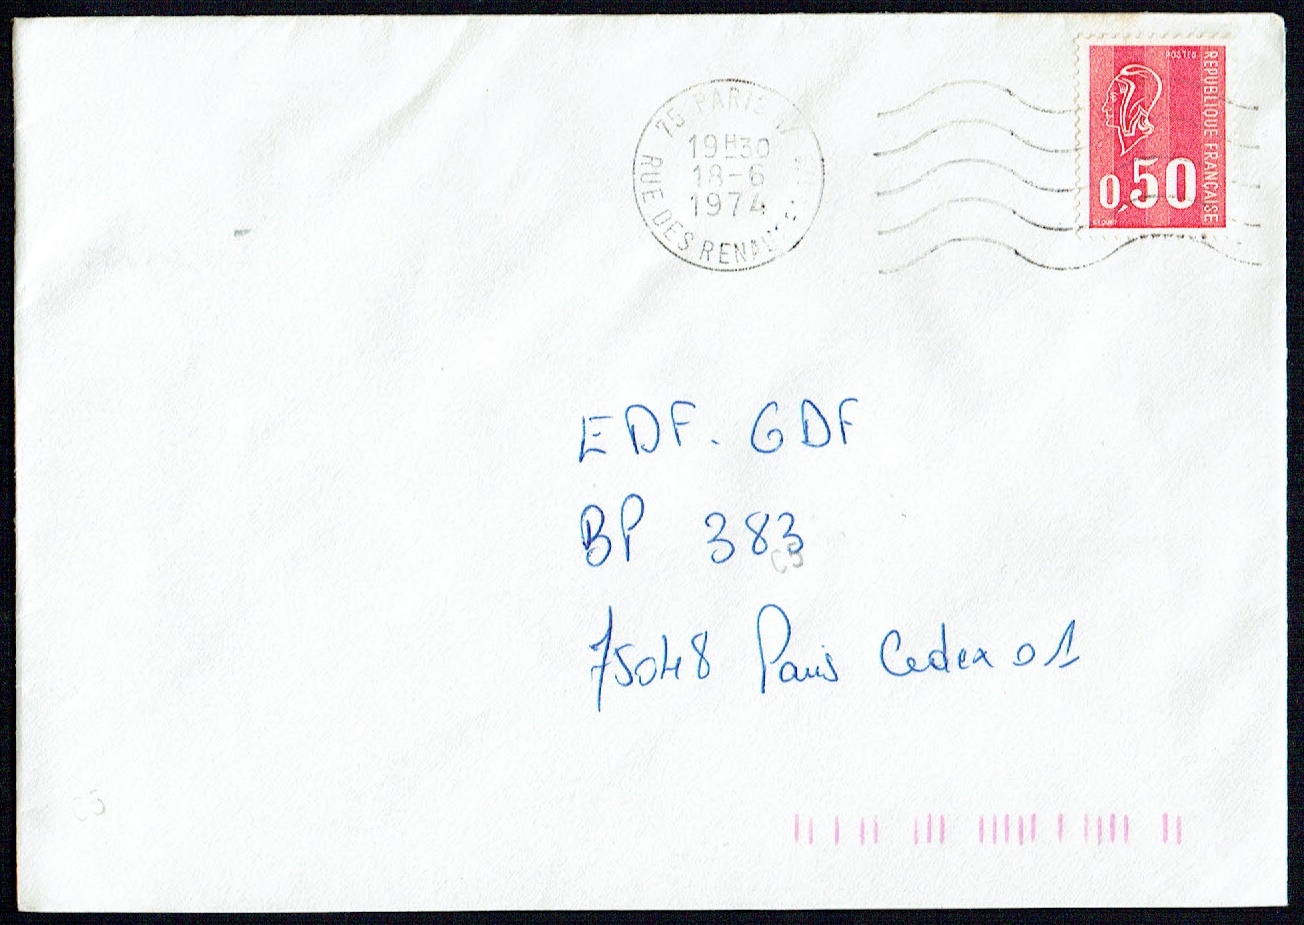 POSTES
REPUBLIQUE FRANÇAISE
0,50
75 PARIS
19H30
18-6
1974
RUE DES
EDF. GDF
BP 383
C5
75048 Paris Cedex 01
C5